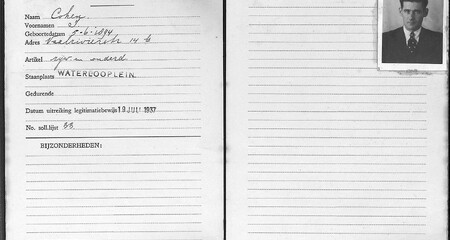 Naam Cohen
Voornamen S.
Geboortedatum 5-6-1894
Adres 14
Artikel en
Staanplaats WATERLOOPLEIN.
Gedurende
Datum uitreiking legitimatiebewijs 19 JULI 1937
No. soll.lijst 33
BIJZONDERHEDEN: